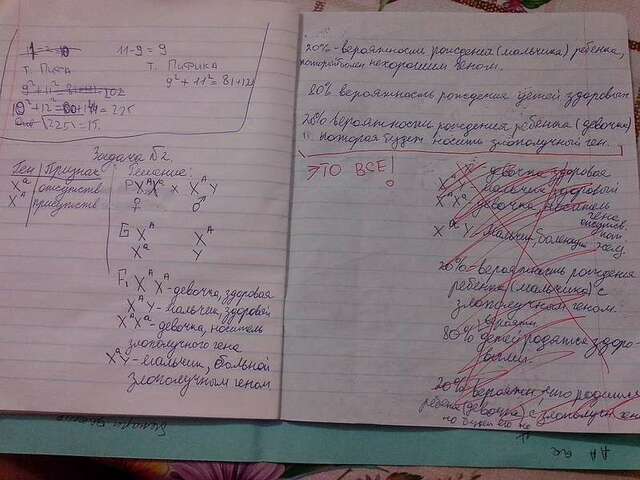 11 - 9 = 9
Т. ПИФА
Т. ПИФИКА
9² + 11² = 81 + 121
√225 = 15.
Задача №2.
Ген | Признак
Решение:
Xᵃ отсутств
Xᴬ присутств
P XᴬXᵃ x XᴬY
♀ ♂
G Xᴬ Xᴬ
Xᵃ Y
F₁ XᴬXᴬ - девочка, здоровая
XᴬY - мальчик, здоровый
XᴬXᵃ - девочка, носитель
злополучного гена
XᵃY - мальчик, больной
злополучным геном
20% - вероятность рождения (мальчика) ребёнка,
нехорошим геном.
вероятность рождения детей здоровых
вероятность рождения ребёнка (девочка)
которая будет носить злополучный ген.
ЭТО ВСЕ!
девочка здоровая
мальчик здоровый
девочка носитель
гена
XᵃY - мальчик, болеющ
20% - вероятность рождения
ребёнка (мальчика) с
злополучным геном.
80% детей родятся здоро-
выми.
20% вероятн
ребёнка (девочка) с злополучн ген